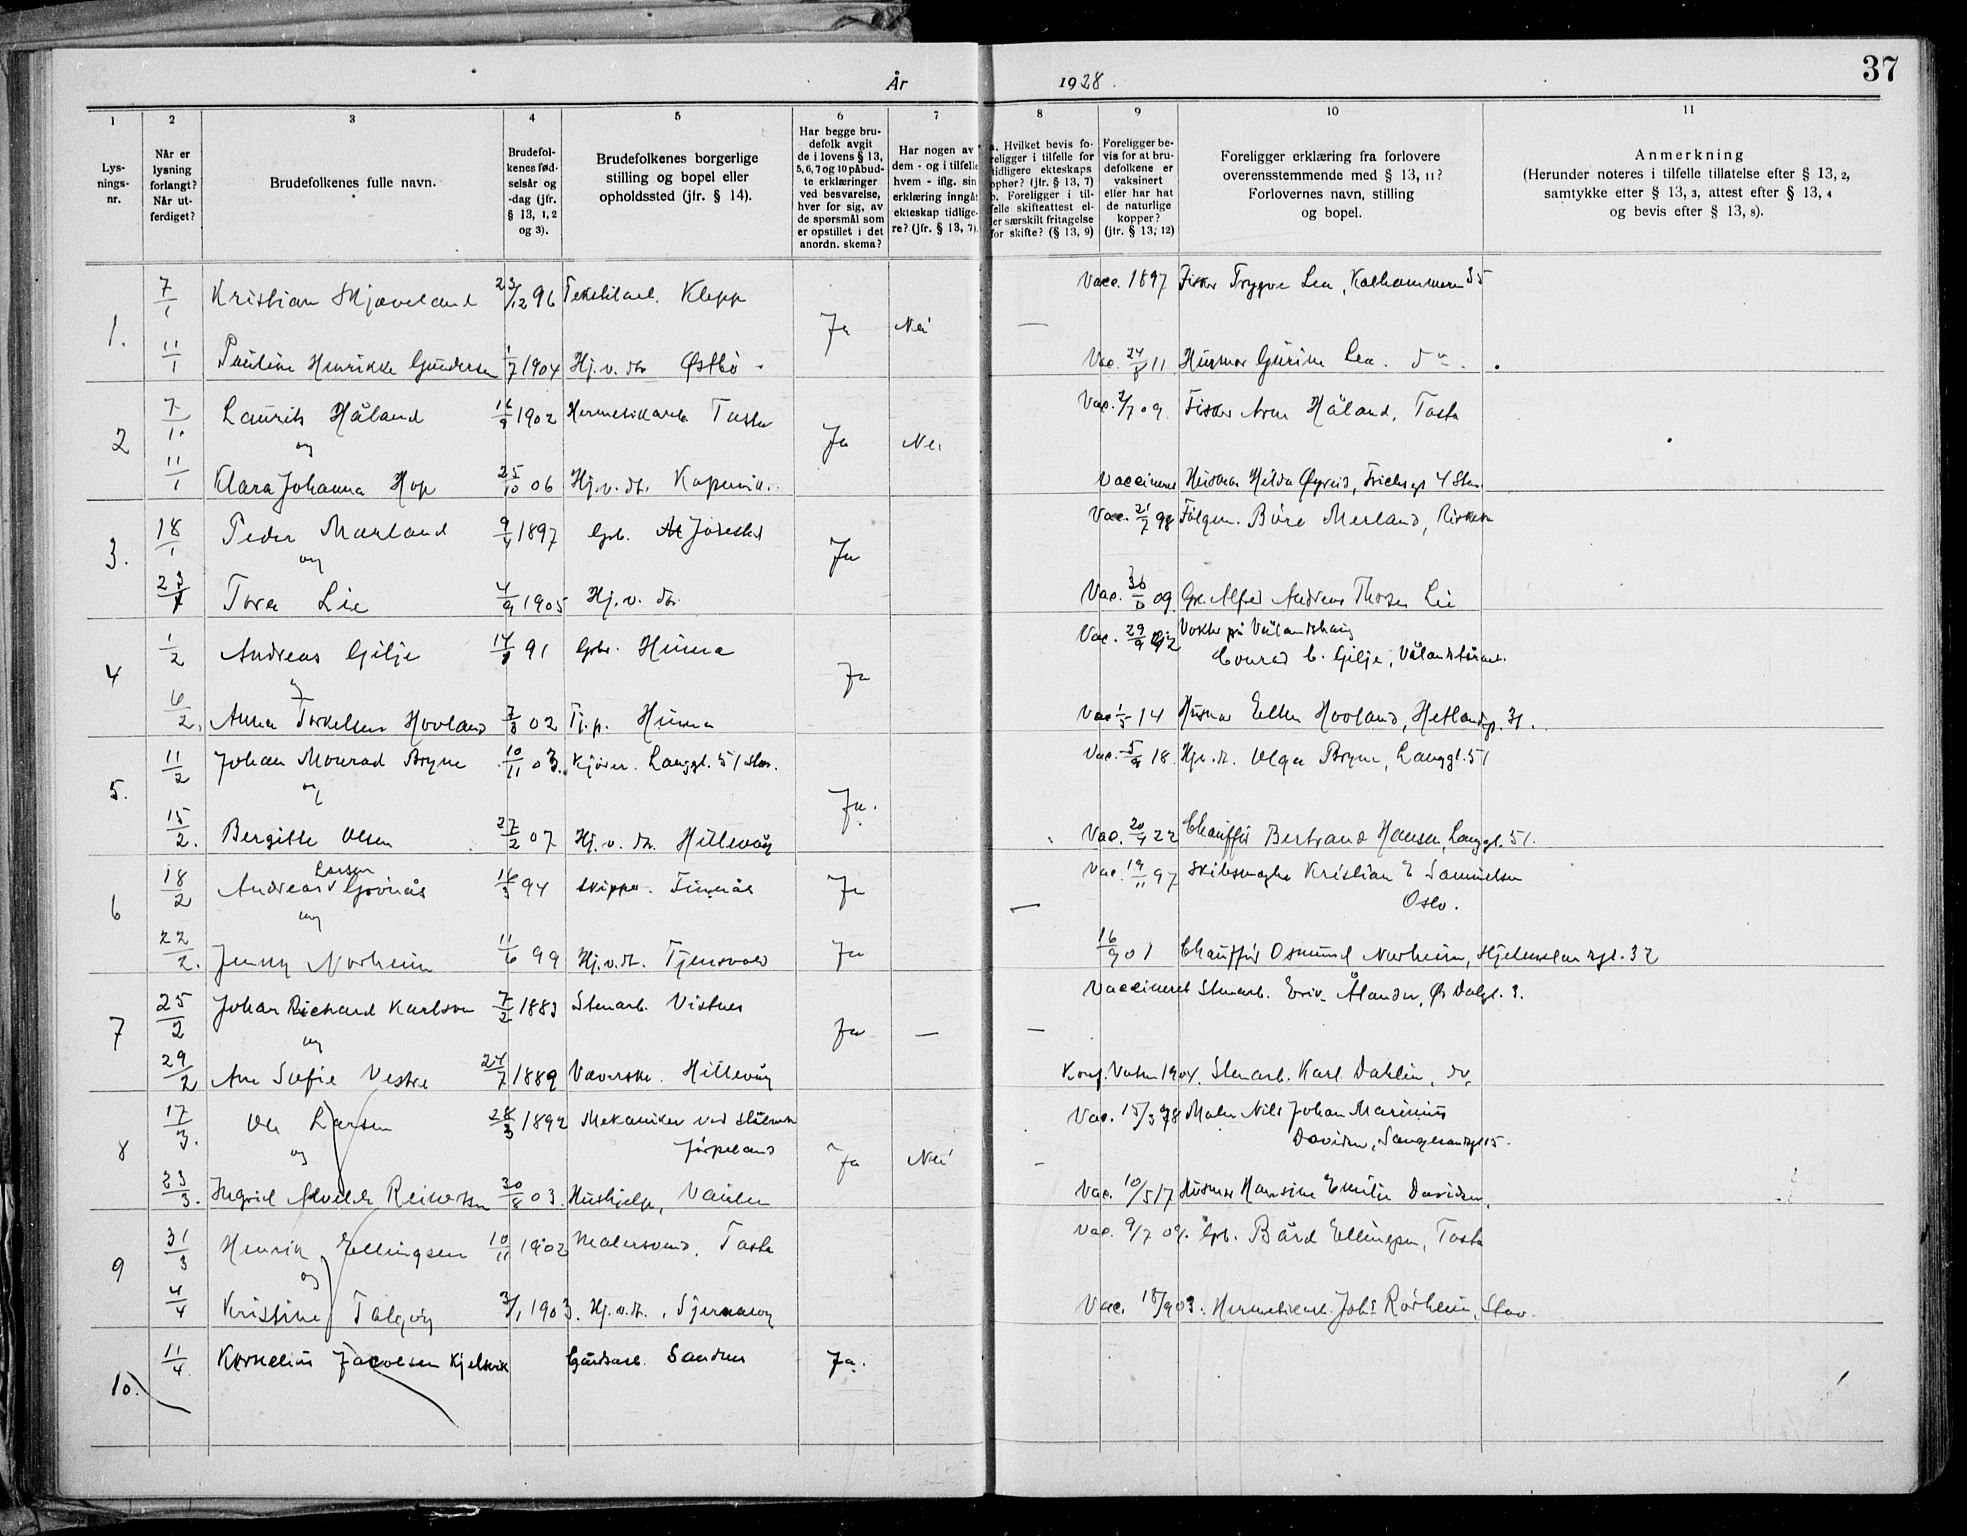 År 1928.
37
1 2 3 4 5 6 7 8 9 10 11
Lys-
nings-
nr.
Når er
lysning
forlangt?
Når ut-
ferdiget?
Brudefolkenes fulle navn.
Brudefol-
kenes fød-
selsår og
-dag (jfr.
§ 13, 1, 2
og 3).
Brudefolkenes borgerlige
stilling og bopel eller
opholdssted (jfr. § 14).
Har begge bru-
defolk avgit
de i lovens § 13,
5, 6, 7 og 10 påbud-
te erklæringer
ved besvarelse,
hver for sig, av
de spørsmål som
er opstillet i det
anordn. skema?
Har nogen av
dem - og i tilfelle
hvem - iflg. sin
erklæring inngåt
ekteskap tidlige-
re? (jfr. § 13, 7).
a. Hvilket bevis fo-
religger i tilfelle for
tidligere ekteskaps
ophør? (jfr. § 13, 7)
b. Foreligger i til-
felle skifteattest el-
ler særskilt fritagelse
for skifte? (§ 13, 9)
Foreligger be-
vis for at bru-
defolkene er
vaksinert
eller har hat
de naturlige
kopper?
(jfr. § 13, 12)
Foreligger erklæring fra forlovere
overensstemmende med § 13, 11?
Forlovernes navn, stilling
og bopel.
Anmerkning
(Herunder noteres i tilfelle tillatelse efter § 13, 2,
samtykke efter § 13, 3, attest efter § 13, 4
og bevis efter § 13, 8).
1. 7/1 Kristian Skjæveland 23/12 96 Tekstilarb. Klepp Ja Nei — Vacc. 1897 Fisker Trygve Lea, Kalhammeren 35
11/1 Pauline Henrikke Gundersen 1/7 1904 Hj. v. do Østbö Vac. 24/8 11 Husmor Gurine Lea. do.
2 7/1 Laurits Håland 16/9 1902 Hermetikkarb. Tasta Ja Nei Vac. 2/7 09. Fisker Arne Håland, Tasta
og
11/1 Klara Johanna Hop 25/10 06 Hj. v. dt. Kopervik. Vaccineret Husmor Hilda Øgreid, 4 Stav.
3. 18/1 Peder Mæland 9/4 1897 Grb. Ja Vac. 21/7 98 Böre Mæland,
og
23/1 Tora Lie 4/9 1905 Hj. v. do. Vac. 30/6 09. Alfred Andreas Thorsen Lie
4 1/2 Andreas Gilje 14/8 91 Grbr. Hinna Ja Vac. 29/9 92 Vokter på Vålandshaug
Conrad C. Gilje, Vålandstårnet.
og
6/2. Anna Torkelsen Hovland 7/3 02 Tj. p. Hinna Vac 1/5 14 Husmor Ellen Hovland, Hetlandsg. 31.
5. 11/2 Johan Monrad Bryne 10/11 03. Kjörer. Langgt. 51 Stav. Ja. Vac. 5/9 18. Hj. v. dt. Olga Bryne, Langgt. 51
og
15/2. Bergitte Olsen 27/2 07 Hj. v. dt. Hillevåg Vac. 20/4 22 Chauffør Bertrand Hansen, Langgt. 51.
6 18/2 Andreas Larsen Govnås 16/3 94 Skipper. Finnås Ja — Vac. 19/11 97 Skibsmegler Kristian E Samuelsen
Oslo.
og
22/2. Jenny Norheim 11/6 99 Hj. v. dt. Tjensvold Ja 16/9 01 Chauffør Osmund Norheim, Hjelmelandsgt. 32
7 25/2 Johan Richard Karlson 7/2 1883 Stenarb. Vistnes Ja — — Vaccineret Stenarb. Eriv. Ålander, Ø. Dalgt. 3.
og
29/2 Ane Sofie Vestre 24/7 1889 Væverske. Hillevåg Konf. Vatne 1904. Stenarb. Karl Dahlin, do,
8 17/3. Ole Larsen 28/3 1892 Mekaniker ved Stålverk
Jörpeland Ja Nei — Vac. 15/3 98 Maler Nils Johan Marinius
Davidsen, Sangesandsgt 15.
og
23/3. Ingrid Alvilde Reinertsen 30/8 03. Hushjelp, Vaulen Vac. 10/5 17 Husmor Hansine Emilie Davidsen.
9 31/3 Henrik Ellingsen 10/11 1902 Malersvend, Tasta Vac. 9/7 09. Grb. Bård Ellingsen, Tasta
og
4/4 Kristine Talgöy 3/1 1903. Hj. v. dt., Sjernaröy Vac. 18/9 03. Hermetikarb. Johs Rörheim, Stav.
10. 11/4 Kornelius Jacobsen Kjelvik Gårdsarb. Sandnes Ja.